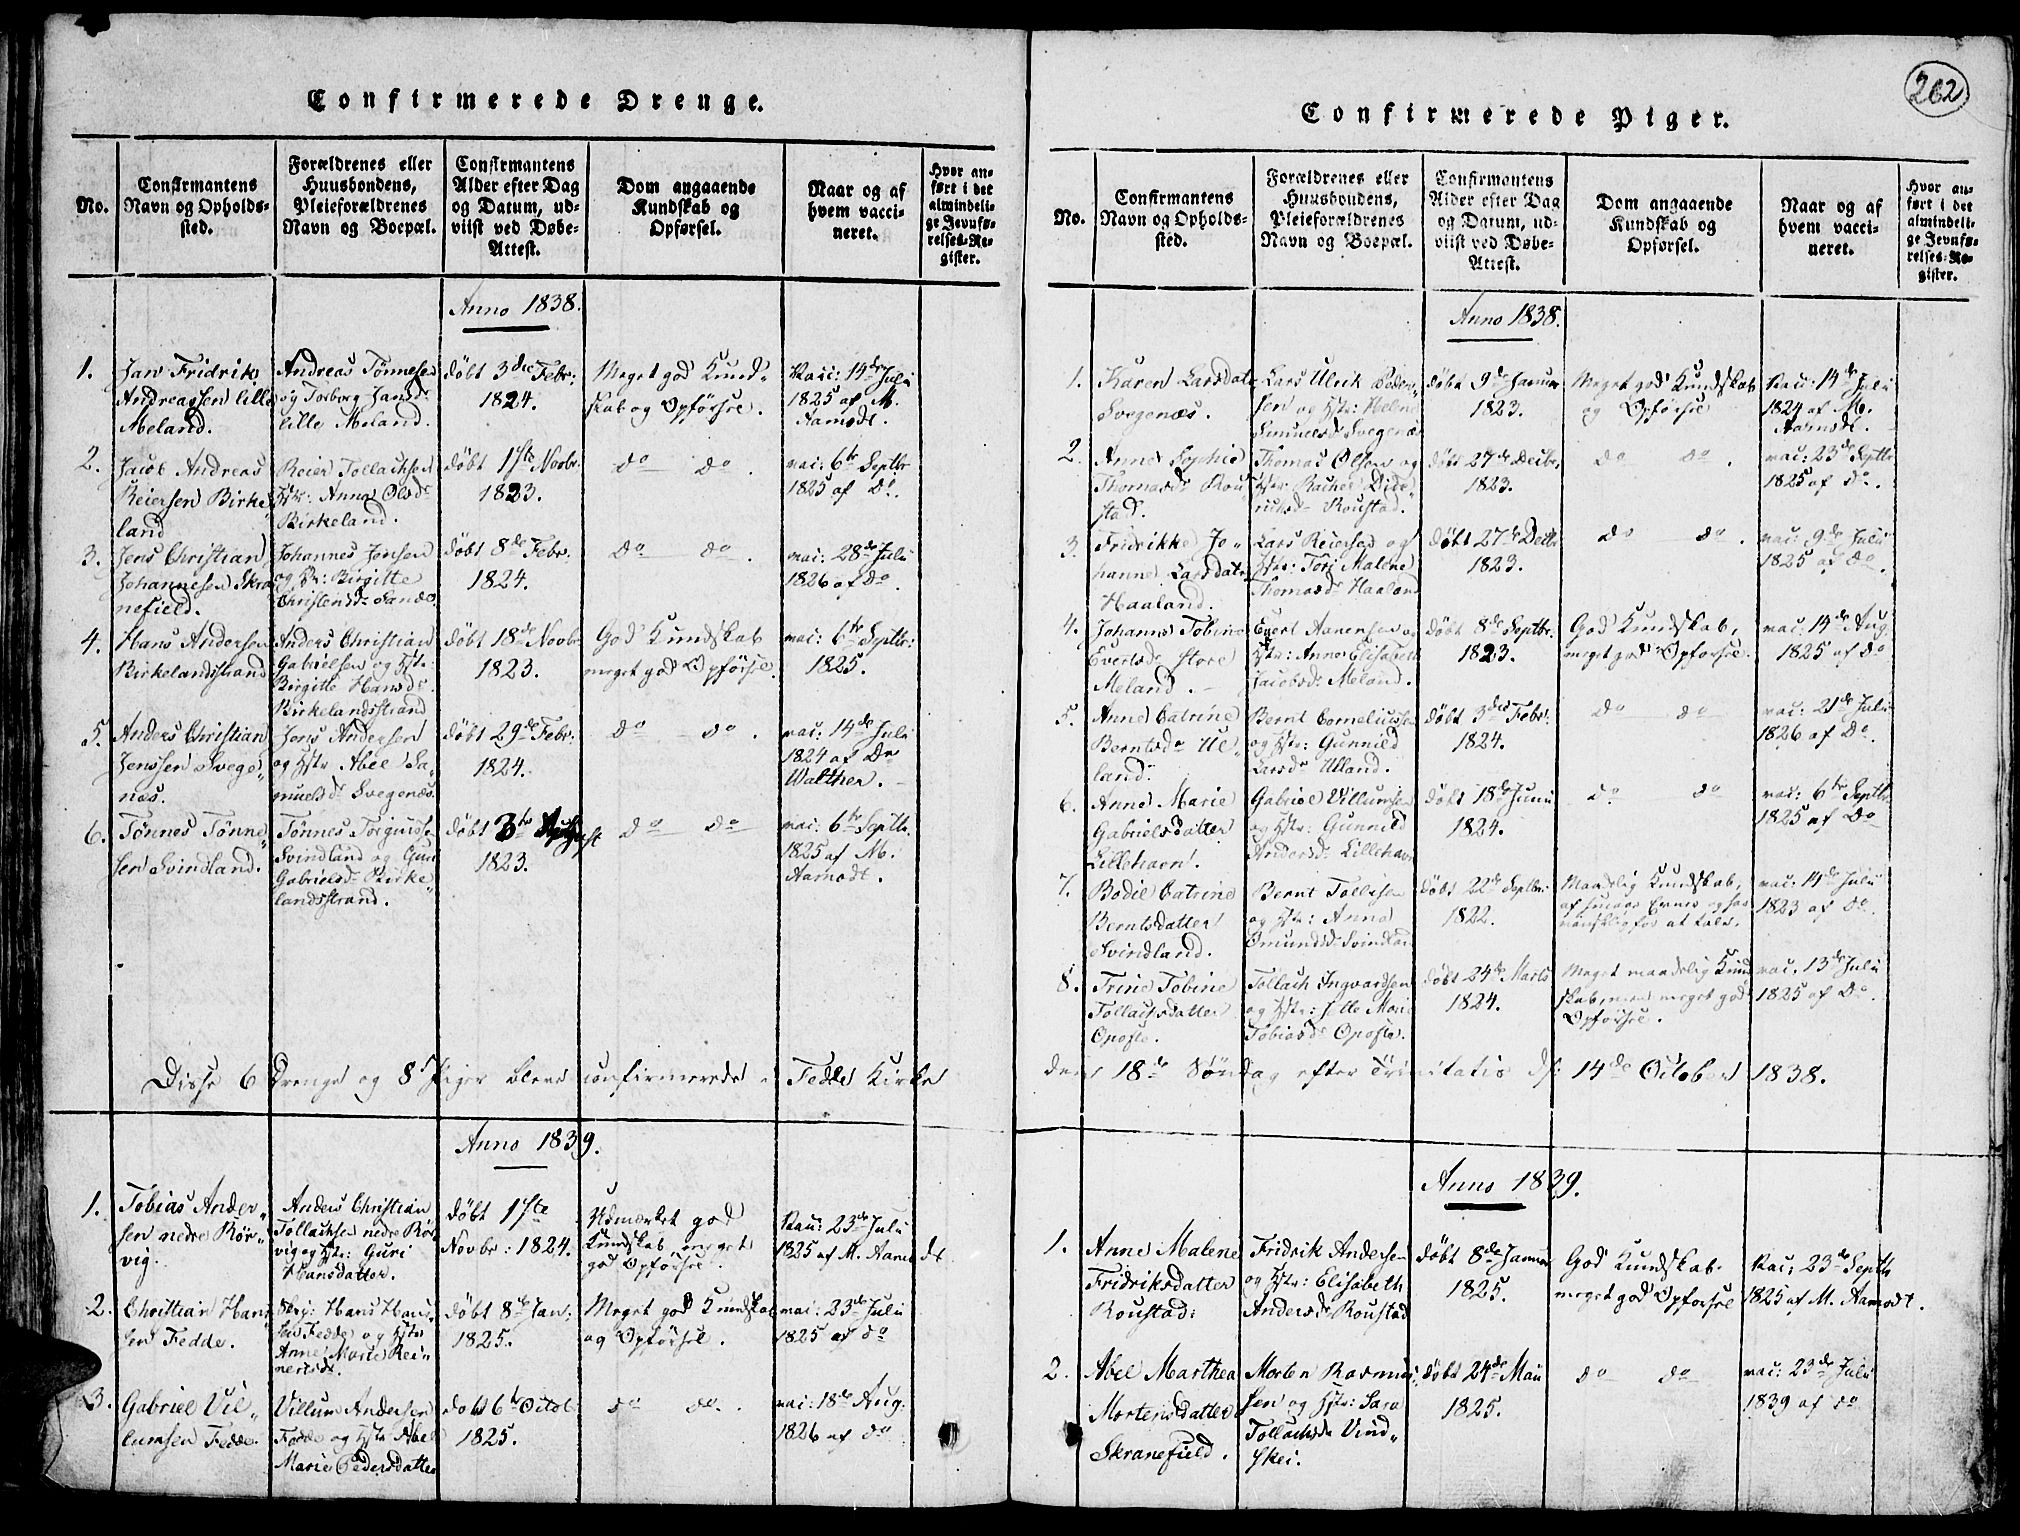 262
Confirmerede Drenge.
No.
Confirmantens
Navn og Opholds-
sted.
Forældrenes eller
Huusbondens,
Pleieforældrenes
Navn og Boepæl.
Confirmantens
Alder efter Dag
og Datum, ud-
viist ved Døbe-
Attest.
Dom angaaende
Kundskab og
Opførsel.
Naar og af
hvem vacci-
neret.
Hvor an-
ført i det
almindeli-
ge Jevnfø-
relses-Re-
gister.
Anno 1838.
1.
Jan Fridrik
Andreassen lille
Meland.
Andreas Tönnesen
og Torborg Jansd:
lille Meland.
döbt 3die Febr:
1824.
Meget god Kund-
skab og Opförsel.
Vacc: 14de Juli
1825 af M.
Aamodt.
2.
Jacob Andreas
Reiersen Birke-
land
Reier Tollachsen
Hstr: Anna Olsd:
Birkeland.
döbt 17de Novbr:
1823.
do do.
vac: 6te Septbr
1825 af Do.
3.
Jens Christian
Johannesen Skra-
nefield.
Johannes Jensen
og Birgitte
Christensd: Sande.
döbt 8de Febr:
1824.
do do.
vac: 28de Juli
1826 af do
4.
Hans Andersen
Birkelandsstrand
Anders Christian
Gabrielsen og Hstr:
Birgitte Hansd:
Birkelandsstrand
döbt 18de Novbr
1823.
God Kundskab
meget god Opförsel.
vac: 6te Septbr:
1825.
5.
Anders Christian
Jenssen Svege-
næs.
Jens Andersen
og Hstr Abel Sa-
muelsd: Svegenæs.
döbt 29de Febr:
1824.
do do.
vac: 14de Juli
1824 af Dr
Walther.
6.
Tönnes Tönne-
sen Svindland.
Tönnes Torgiuse
Svindland og Gun
Gabrielsd: Birke-
landsstrand.
döbt 3te August
1823.
do do.
vac: 6te Septbr.
1825 af M.
Aamodt.
Disse 6 Drenge og 8 Piger bleve confirmerede i Fedde Kirke
Anno 1839.
1.
Tobias Ander-
sen nedre Rör-
vig.
Anders Christian
Tollachsen nedre Rör
vig og Hstr: Guri
Hansdatter.
döbt 17de
Novbr: 1824.
Udmærket god
Kundskab, meget
god Opförsel.
Vac: 23de Juli
1825 af M. Aamodt
2.
Christian Han-
sen Fedde.
Hans Han-
sen Fedde og Hstr
Anne Marie Rei-
nertsdt.
döbt 8de Jan:
1825.
Meget god Kundskab
og Opförsel.
vac: 23de Juli
1825 af do
3.
Gabriel Vil-
lumsen Fedde.
Villum Andersen
Fedde og Hstr Abel
Marie Pedersdatter
döbt 6te Octob:
1825.
do do.
vac: 18de Aug:
1826 af do
Confirmerede Piger.
No.
Confirmantens
Navn og Opholds-
sted.
Forældrenes eller
Huusbondens,
Pleieforældrenes
Navn og Boepæl.
Confirmantens
Alder efter Dag
og Datum, ud-
viist ved Døbe-
Attest.
Dom angaaende
Kundskab og
Opførsel.
Naar og af
hvem vacci-
neret.
Hvor an-
ført i det
almindeli-
ge Jevnfø-
relses-Re-
gister.
Anno 1838.
1.
Karen Larsdatr
Svegenæs.
Lars Ulrik
sen og Hstr: Helene
Samuelsd: Svegenæs
döbt 9de Januar
1823.
Meget god Kundskab
og Opförsel
Vac: 14de Juli
1824 af M.
Aamodt.
2.
Anne Sophie
Thomasd: Rou-
stad.
Thomas Olsen og
Hstr: Rachel Dide-
riksd: Roustad.
döbt 27de Decbr.
1823.
do do.
vac: 23de Septbr
1825 af do.
3.
Fridrikke Jo-
hanne Larsdatr
Haaland.
Lars Reiersen og
Hstr: Tori Malene
Thomasd: Haaland
döbt 27de Decbr
1823.
do do.
vac: 9de Juli
1825 af do.
4.
Johanne Tobine
Evertsd: Store
Meland.
Evert Aanensen og
Hstr: Anne Elisabeth
Jacobsd: Meland.
döbt 8de Septbr.
1823.
God Kundskab,
meget god Opförsel.
vac: 14de Aug.
1825 af do
5.
Anne Catrine
Berntsdr Ul-
land.
Bernt Corneliussen
og Hstr: Gunnild
Larsdr Ulland.
döbt 3die Febr:
1824.
do do
vac: 21de Juli
1826 af Do.
6.
Anne Marie
Gabrielsdatter
Lillehavn.
Gabriel Villumsen
og Hstr: Gunnild
Andersd: Lillehavn
döbt 18de Juni
1824.
do do
vac: 6te Septbr.
1825 af Do
7.
Bodil Catrine
Berntsdatter
Svindland.
Bernt Tollisen
og Hstr: Anna
Omundsd: Svindland
döbt 22de Septbr:
1822.
Maadelig Kundskab,
af svage Evner og har
vanskelig for at tale.
vac: 14de Juli
1823 af do.
8.
Trine Tobine
Tollachsdatter
Opofte.
Tollach Ingvardsen
og Hstr: Jitte Marie
Tobiasdr Opofte.
döbt 24de Marts
1824.
Meget maadelig Kund-
skab, men meget god
Opförsel.
vac. 13de Juli
1825 af Do.
den 18de Söndag efter Trinitatis d: 14de October 1838.
Anno 1839.
1.
Anne Malene
Fridriksdatter
Roustad.
Fridrik Andersen
og Hstr: Elisabeth
Andersdr Roustad
döbt 8de Januar
1825.
God Kundskab.
meget god Opförsel
Vac: 23de Septbr
1825 af M. Aamodt.
2.
Abel Marthea
Mortensdatter
Skranefield.
Morten Rasmus-
sen og Hstr: Sara
Tollachsdr Vind-
skei.
döbt 24de Mai
1825.
do do
vac: 23de Juli
1839 af do